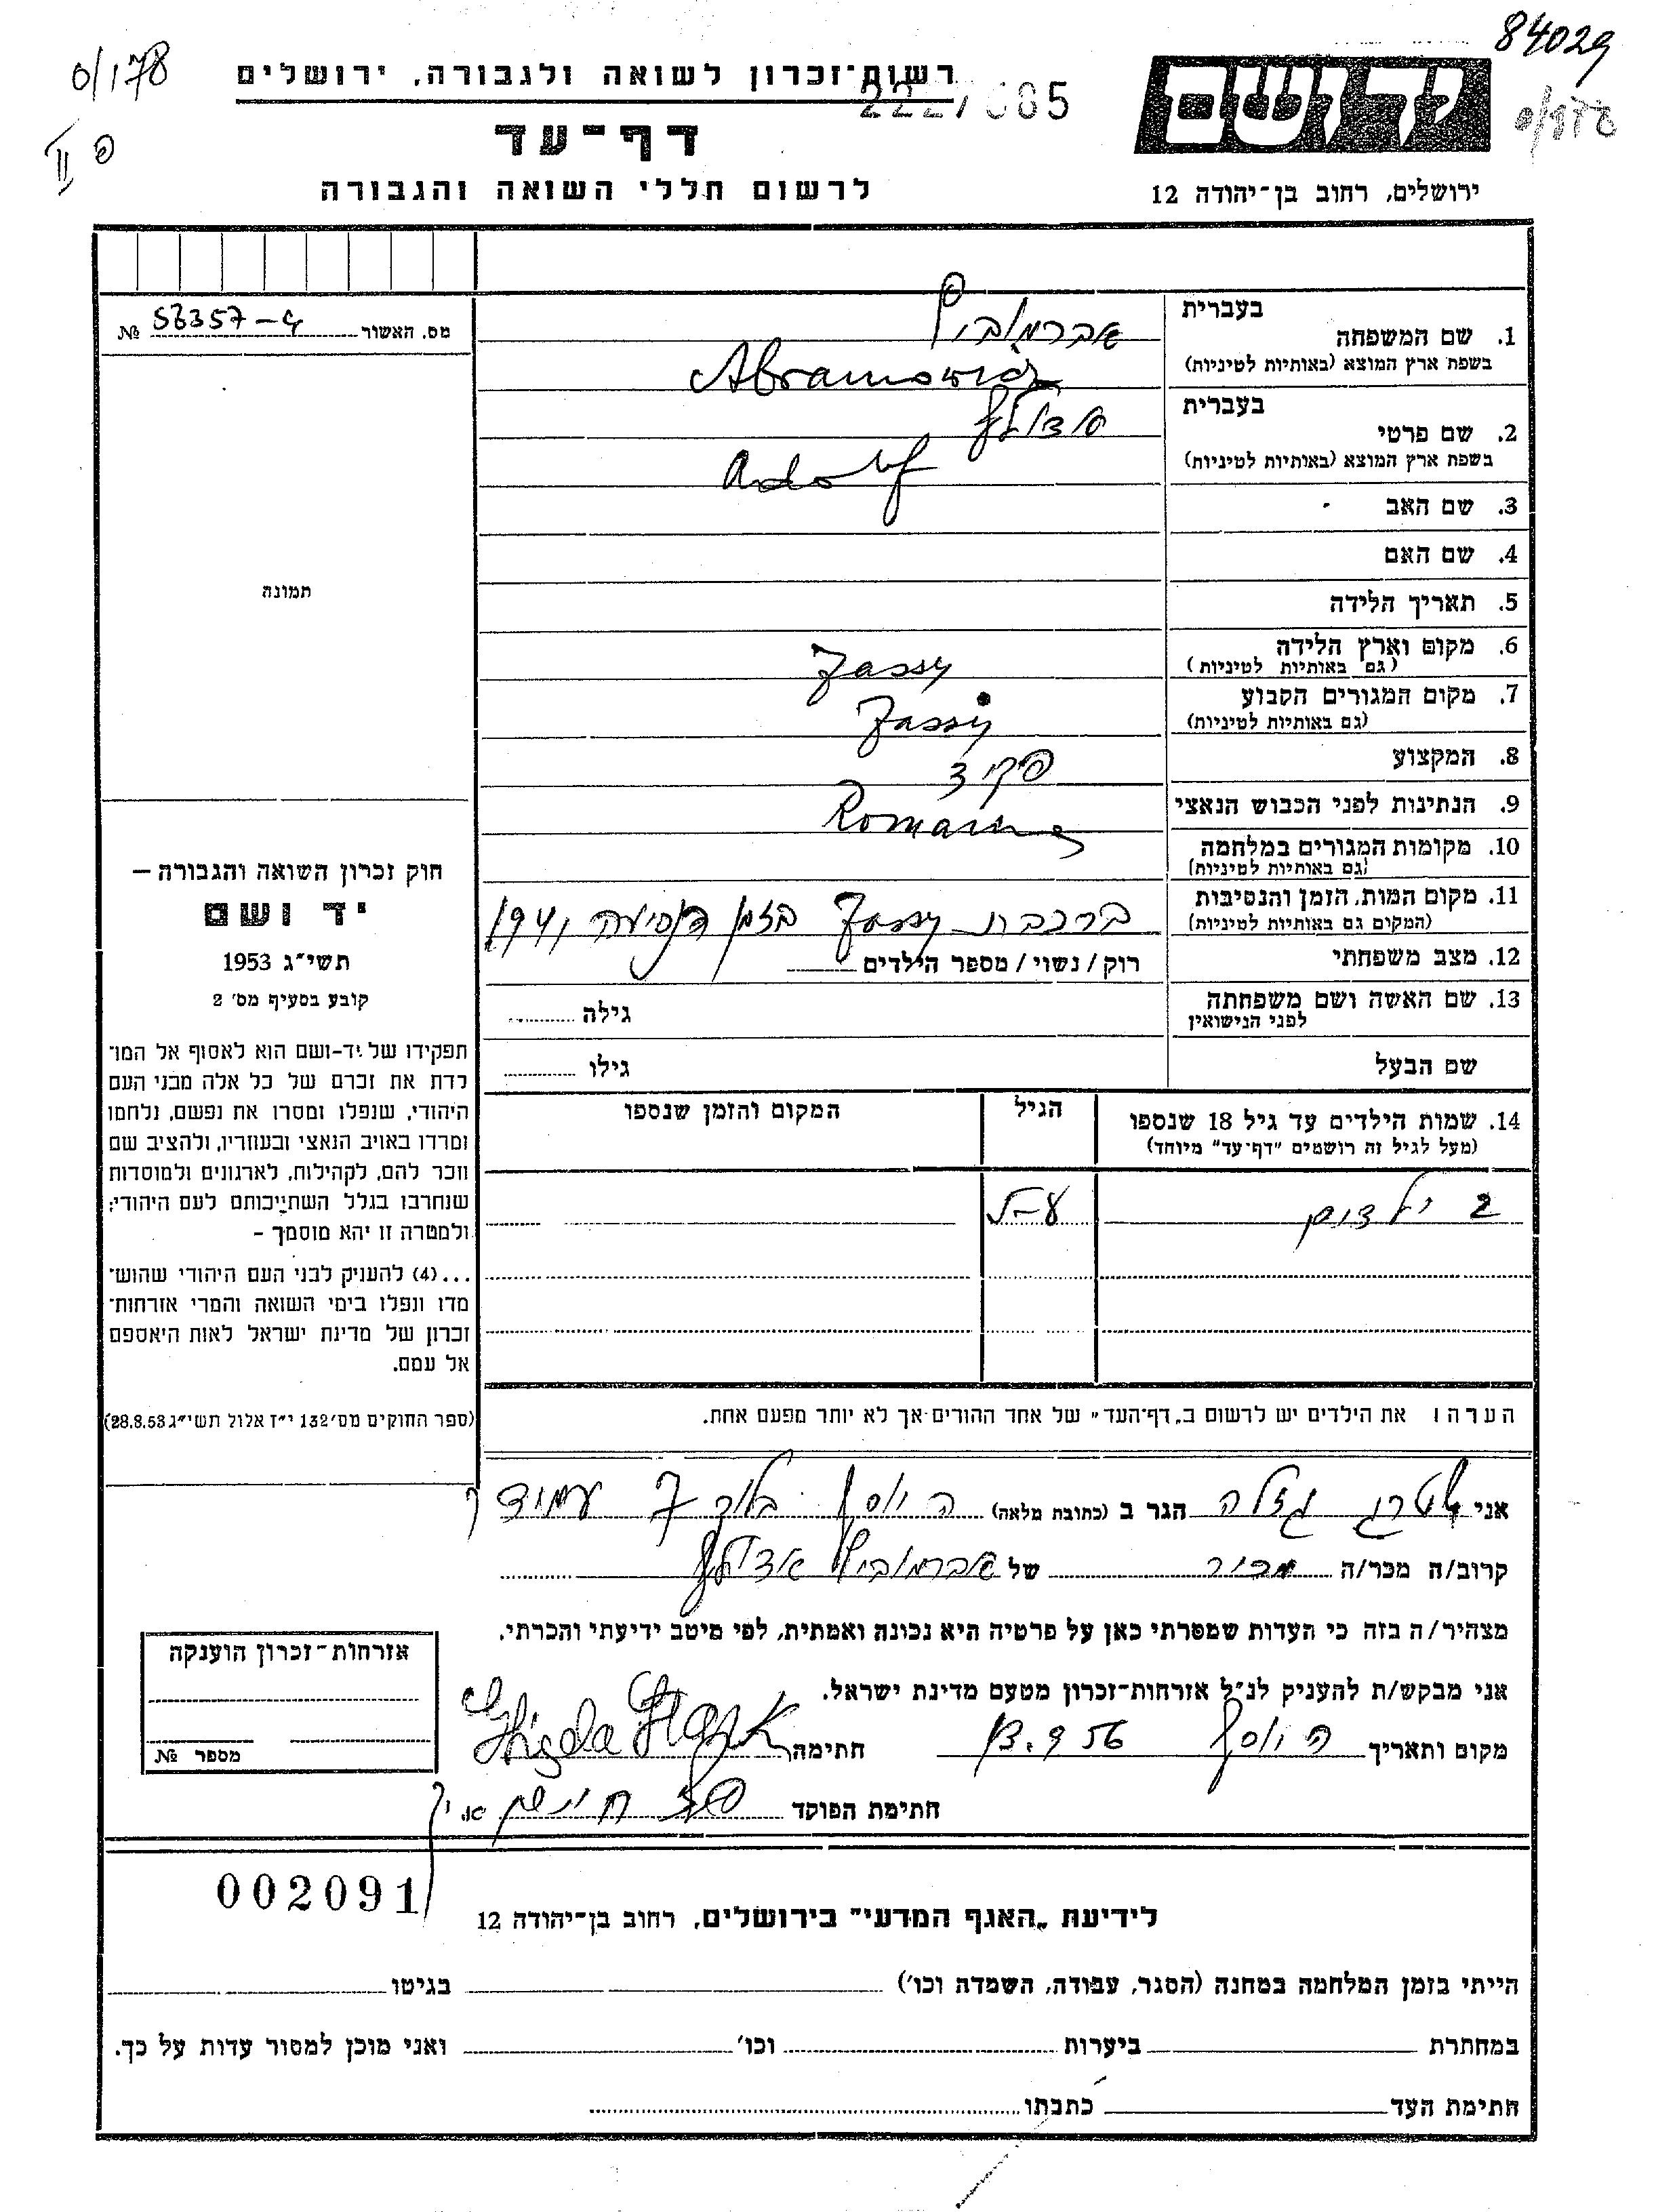 84029
0/178
רשות־זכרון לשואה ולגבורה, ירושלים
2227085
יד ושם
0/178
דף־עד
פ II
לרשום חללי השואה והגבורה
ירושלים, רחוב בן־יהודה 12
מס. האשור 56357-4 №
תמונה
1. שם המשפחה בעברית אברמוביץ
בשפת ארץ המוצא (באותיות לטיניות) Abramowicz
2. שם פרטי בעברית אדולף
בשפת ארץ המוצא (באותיות לטיניות) Adolf
3. שם האב
4. שם האם
5. תאריך הלידה
6. מקום וארץ הלידה Jassy
(גם באותיות לטיניות)
7. מקום המגורים הקבוע Jassy
(גם באותיות לטיניות)
8. המקצוע פקיד
9. הנתינות לפני הכבוש הנאצי
10. מקומות המגורים במלחמה
(גם באותיות לטיניות)
11. מקום המות, הזמן והנסיבות ברכבת Jassy בזמן הנסיעה 1941
(המקום גם באותיות לטיניות)
12. מצב משפחתי רוק / נשוי / מספר הילדים
13. שם האשה ושם משפחתה גילה
לפני הנישואין
שם הבעל גילו
14. שמות הילדים עד גיל 18 שנספו הגיל המקום והזמן שנספו
(מעל לגיל זה רושמים "דף־עד" מיוחד)
2 ילדים
הערה: את הילדים יש לרשום ב„דף־העד" של אחד ההורים אך לא יותר מפעם אחת.
חוק זכרון השואה והגבורה —
יד ושם
תשי"ג 1953
קובע בסעיף מס' 2
תפקידו של יד-ושם הוא לאסוף אל המו־
לדת את זכרם של כל אלה מבני העם
היהודי, שנפלו ומסרו את נפשם, נלחמו
ומרדו באויב הנאצי ובעוזריו, ולהציב שם
וזכר להם, לקהילות, לארגונים ולמוסדות
שנחרבו בגלל השתייכותם לעם היהודי;
ולמטרה זו יהא מוסמך –
...(4) להעניק לבני העם היהודי שהוש־
מדו ונפלו בימי השואה והמרי אזרחות־
זכרון של מדינת ישראל לאות היאספם
אל עמם.
(ספר החוקים מס' 132 י"ז אלול תשי"ג 28.8.53)
אני שטרן גזלה הגר ב (כתובת מלאה)
קרוב/ה מכר/ה מכיר של אברמוביץ אדולף
מצהיר/ה בזה כי העדות שמסרתי כאן על פרטיה היא נכונה ואמתית, לפי מיטב ידיעתי והכרתי.
אני מבקש/ת להעניק לנ"ל אזרחות־זכרון מטעם מדינת ישראל.
מקום ותאריך חתימה
חתימת הפוקד
אזרחות־זכרון הוענקה
מספר №
002091
לידיעת „האגף המדעי" בירושלים, רחוב בן־יהודה 12
הייתי בזמן המלחמה במחנה (הסגר, עבודה, השמדה וכו') בגיטו
במחתרת ביערות וכו' ואני מוכן למסור עדות על כך.
חתימת העד כתבתו